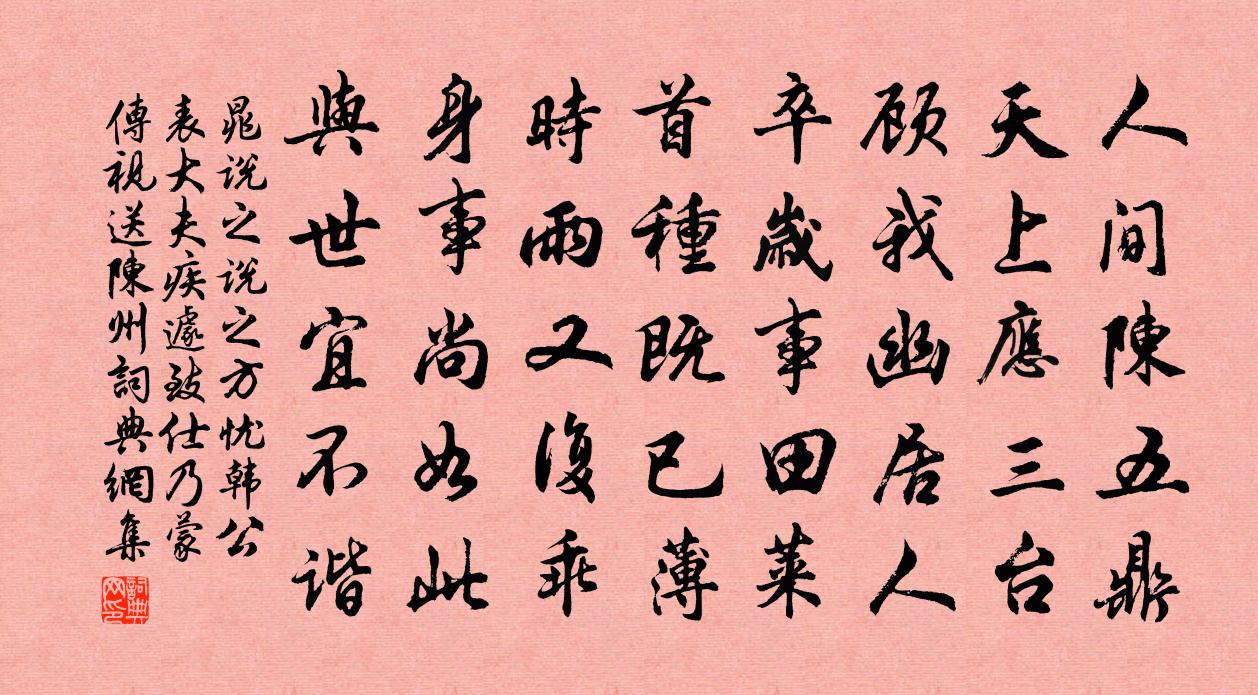 人間陳五鼎
天上應三台
顾我幽居人
卒歲事田萊
首種既已薄
時雨又復乖
身事尚如此
與世宜不谐
晁说之说之方忧韩公
表大夫疾遽致仕乃蒙
傳視送陳州詞典網集
詞典
网印